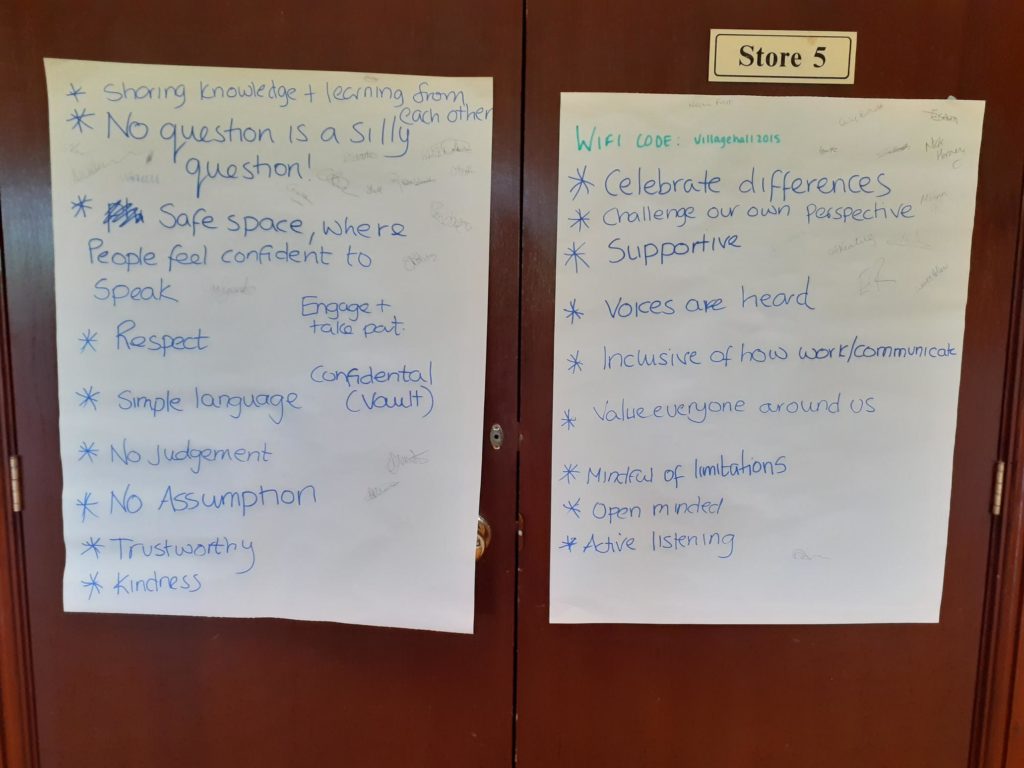 * Sharing knowledge + learning from
each other
* No question is a silly
question!
* Safe space, where
People feel confident to
Speak
Engage +
take part.
* Respect
Confidental
(Vault)
* Simple language
* No Judgement
* No Assumption
* Trustworthy
* Kindness
Store 5
WIFI CODE: Villagehall2015
* Celebrate differences
* Challenge our own perspective
* Supportive
* Voices are heard
* Inclusive of how work/communicate
* Value everyone around us
* Mindful of limitations
* Open minded
* Active listening